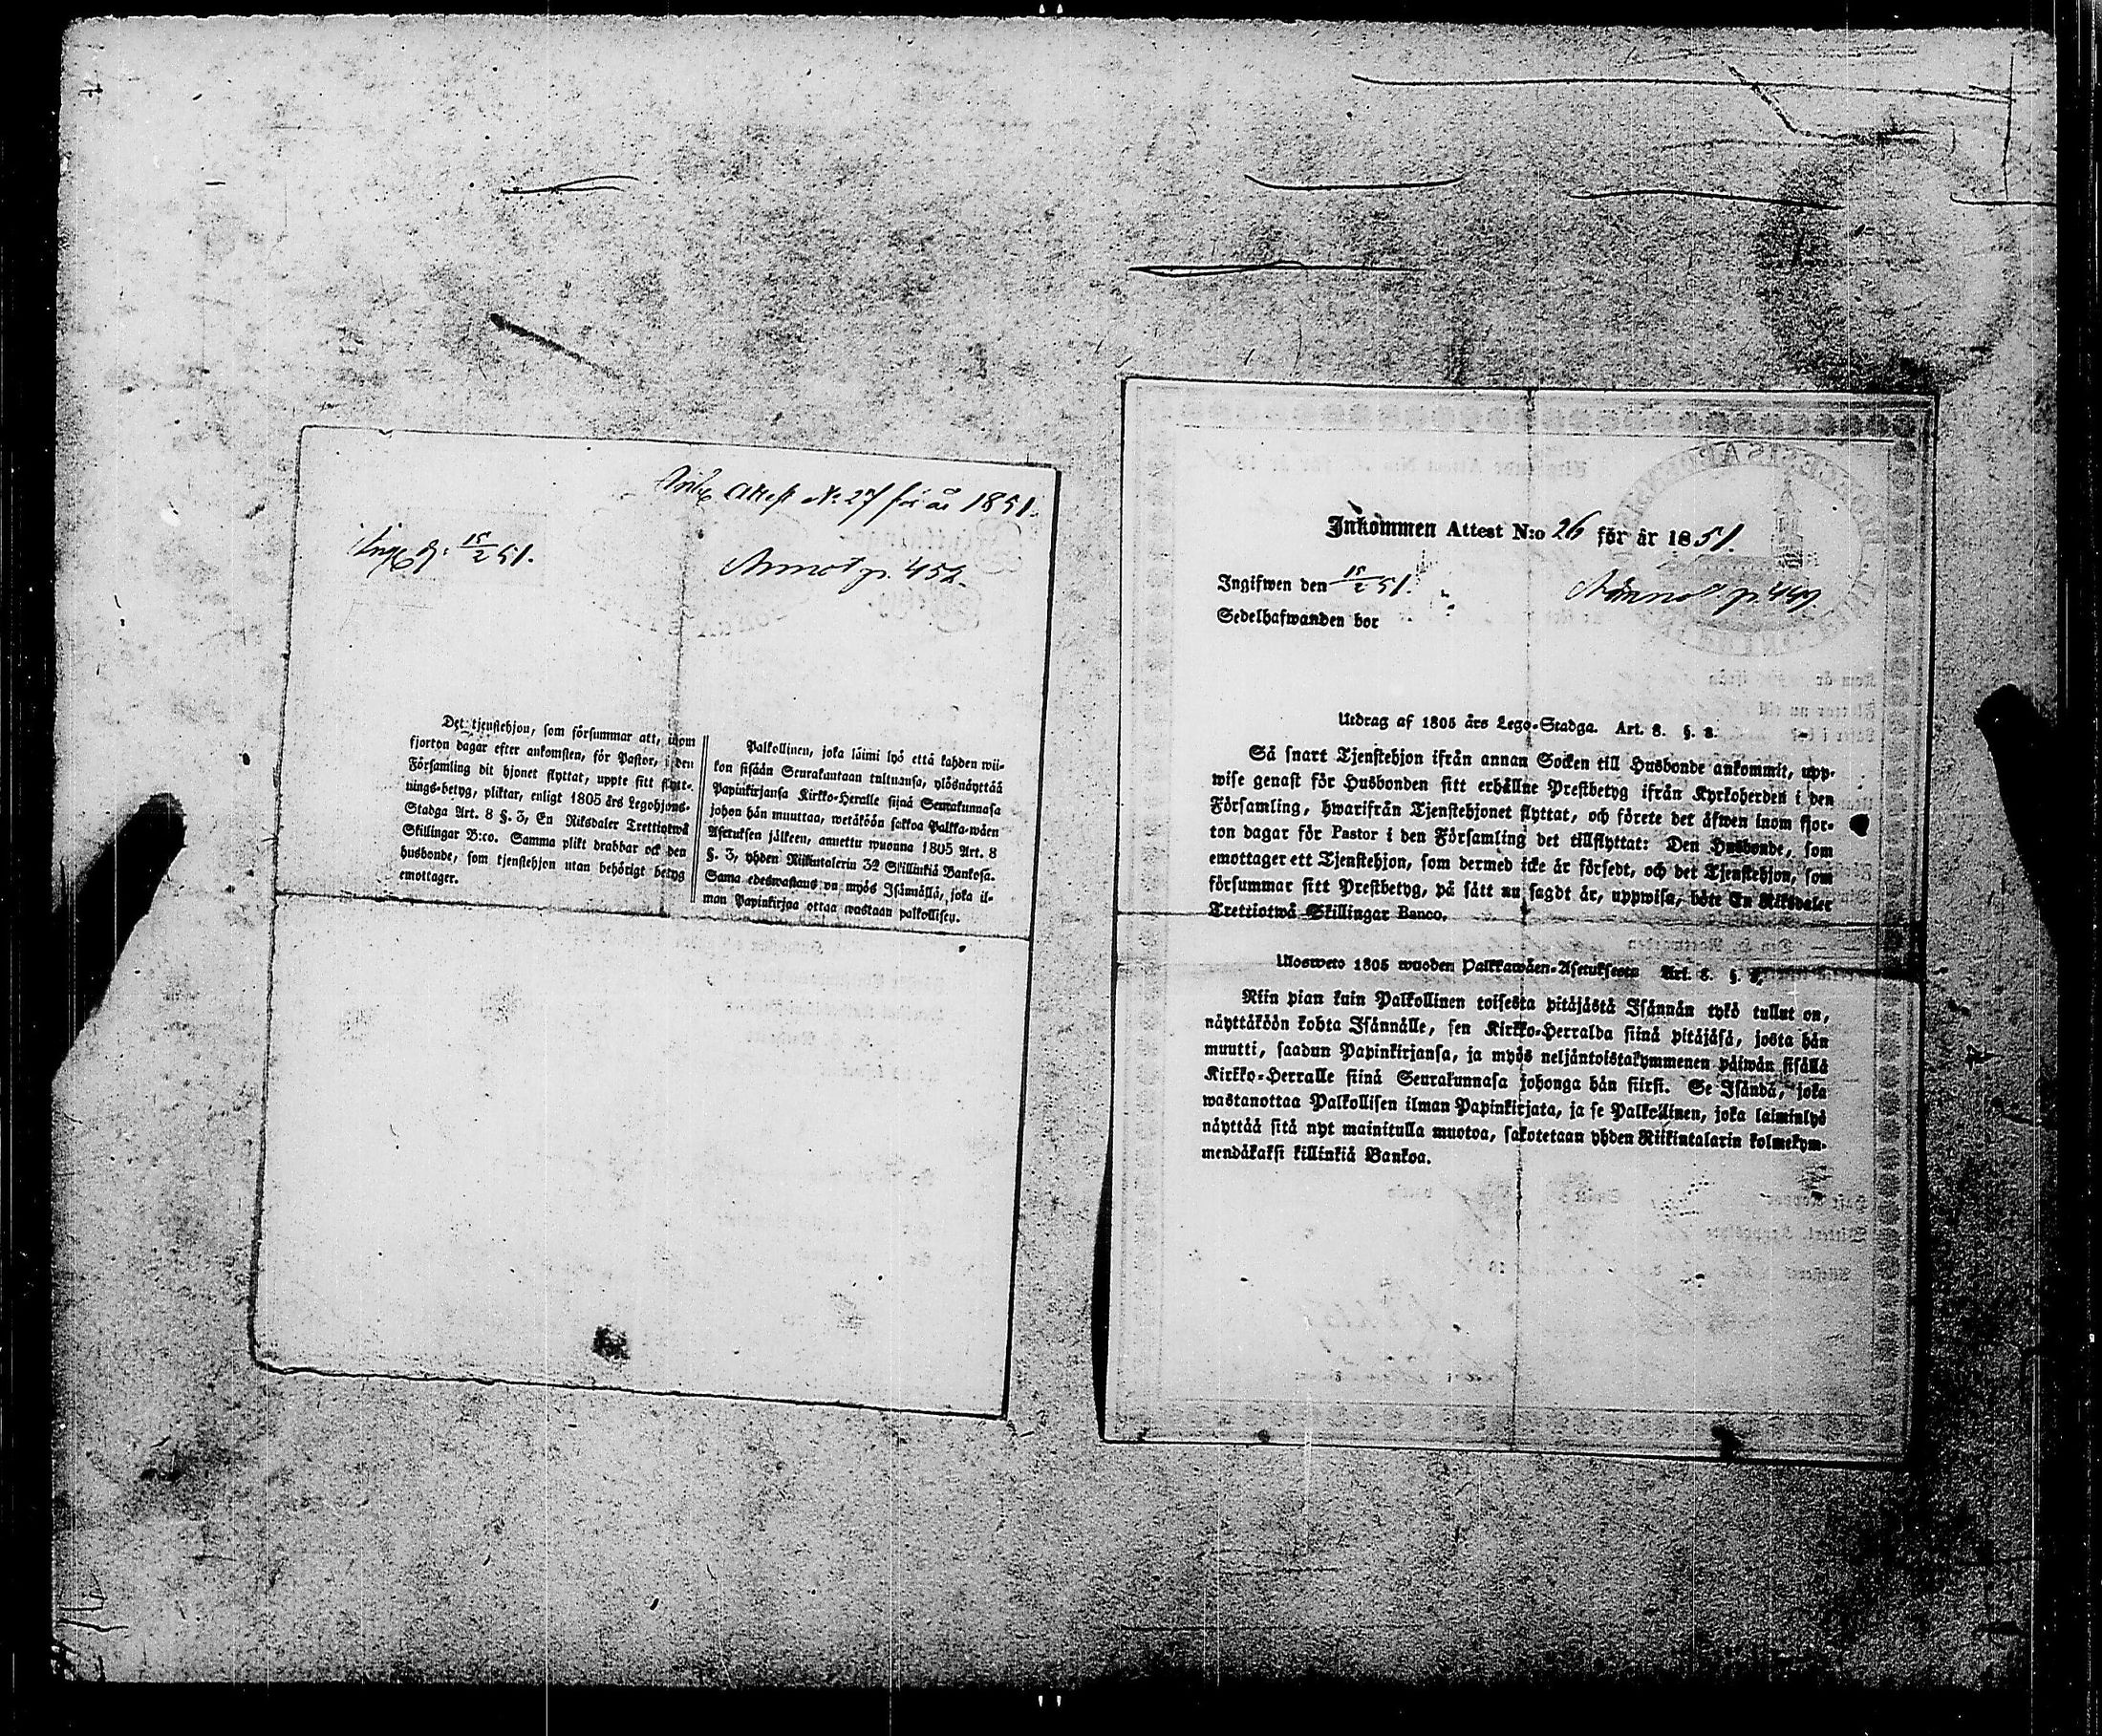 Attest No 27 för år 1851.
Ing. d. 15/2 51.
Annot. p. 452.
Det tjenstehjon, som försummar att, inom
fjorton dagar efter ankomsten, för Pastor, i den
Församling dit hjonet flyttat, uppte sitt flytt-
nings-betyg, pliktar, enligt 1805 års Legohjons-
Stadga Art. 8 §. 3, En Riksdaler Trettiotwå
Skillingar B:co. Samma plikt drabbar ock den
husbonde, som tjenstehjon utan behörigt betyg
emottager.
Palkollinen, joka läimi lyö että kahden wii-
kon sisään Seurakuntaan tultuansa, ylösnäyttää
Papinkirjansa Kirkko-Heralle siinä Seurakunnasa
johon hän muuttaa, wetäköön sakkoa Palkka-wäen
Asetuksen jälkeen, annettu wuonna 1805 Art. 8
§. 3, yhden Riikintalerin 32 Skillinkiä Bankosa.
Sama edeswastaus on myös Isännällä, joka il-
man Papinkirjaa ottaa wastaan palkollisen.
Inkommen Attest N:o 26 för år 1851.
Ingifwen den 15/2 51.
Annot. p. 449.
Sedelhafwanden bor
Utdrag af 1805 års Lego-Stadga. Art. 8. §. 3.
Så snart Tjenstehjon ifrån annan Socken till Husbonde ankommit, upp-
wise genast för Husbonden sitt erhållne Prestbetyg ifrån Kyrkoherden i den
Församling, hwarifrån Tjenstehjonet flyttat, och förete det äfwen inom fjor-
ton dagar för Pastor i den Församling det tillflyttat: Den Husbonde, som
emottager ett Tjenstehjon, som dermed icke är försedt, och det Tjenstehjon, som
försummar sitt Prestbetyg, på sätt nu sagdt är, uppwisa, böte En Riksdaler
Trettiotwå Skillingar Banco.
Ulosweto 1805 wuoden Palkkawäen-Asetuksesta Art. 8. §. 3.
Niin pian kuin Palkollinen toisesta pitäjästä Isännän tykö tullut on,
näyttäköön kohta Isännälle, sen Kirkko-Herralda siinä pitäjäsä, josta hän
muutti, saadun Papinkirjansa, ja myös neljäntoistakymmenen päiwän sisällä
Kirkko-Herralle siinä Seurakunnasa johonga hän siirsi. Se Isändä, joka
wastanottaa Palkollisen ilman Papinkirjata, ja se Palkollinen, joka laiminlyö
näyttää sitä nyt mainitulla muotoa, sakotetaan yhden Riikintalarin kolmekym-
mendäkaksi killinkiä Bankoa.